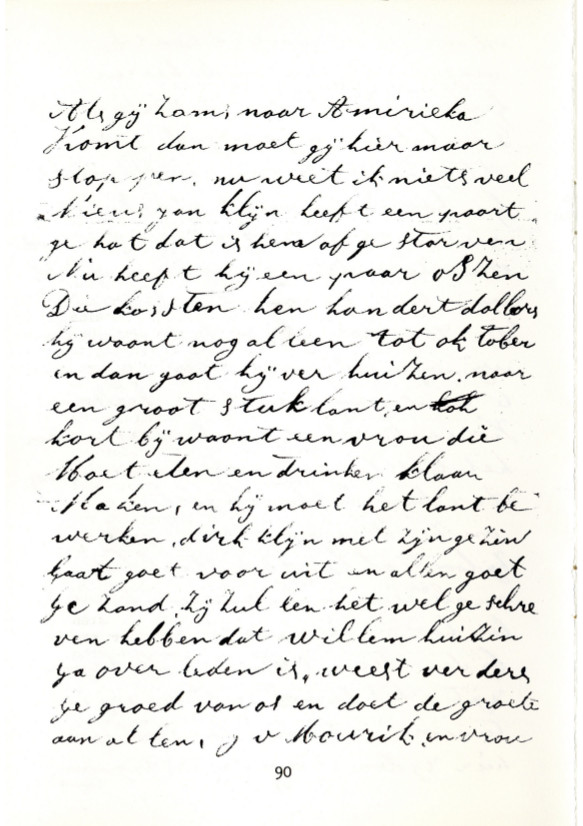 Als gÿ zoms naar Amirieka
Komt dan moet gÿ hier maar
stop per. nu weet ik niets veel
Nieus jan klÿn heeft een paart
ge hat dat is hem af ge storven
Nu heeft hÿ een paar osZen
Die kossten hen hondert dollars
hÿ woont nog alleen tot ok tober
en dan gaat hÿ ver huiZen. naar
een groot stuk lant, en
kort bÿ woont een vrou die
Moet eten en drinken klaar
Maken, en hÿ moet het lant be
werken, dirk klÿn met zÿn ge zin
gaat goet voor uit en allen goet
ge zond. zÿ zul len het wel ge schre
ven hebben dat willem huiZin
ga over leden is, weest ver ders
ge groed van os en doet de groete
aan al len, J v Mourik en vrou
90